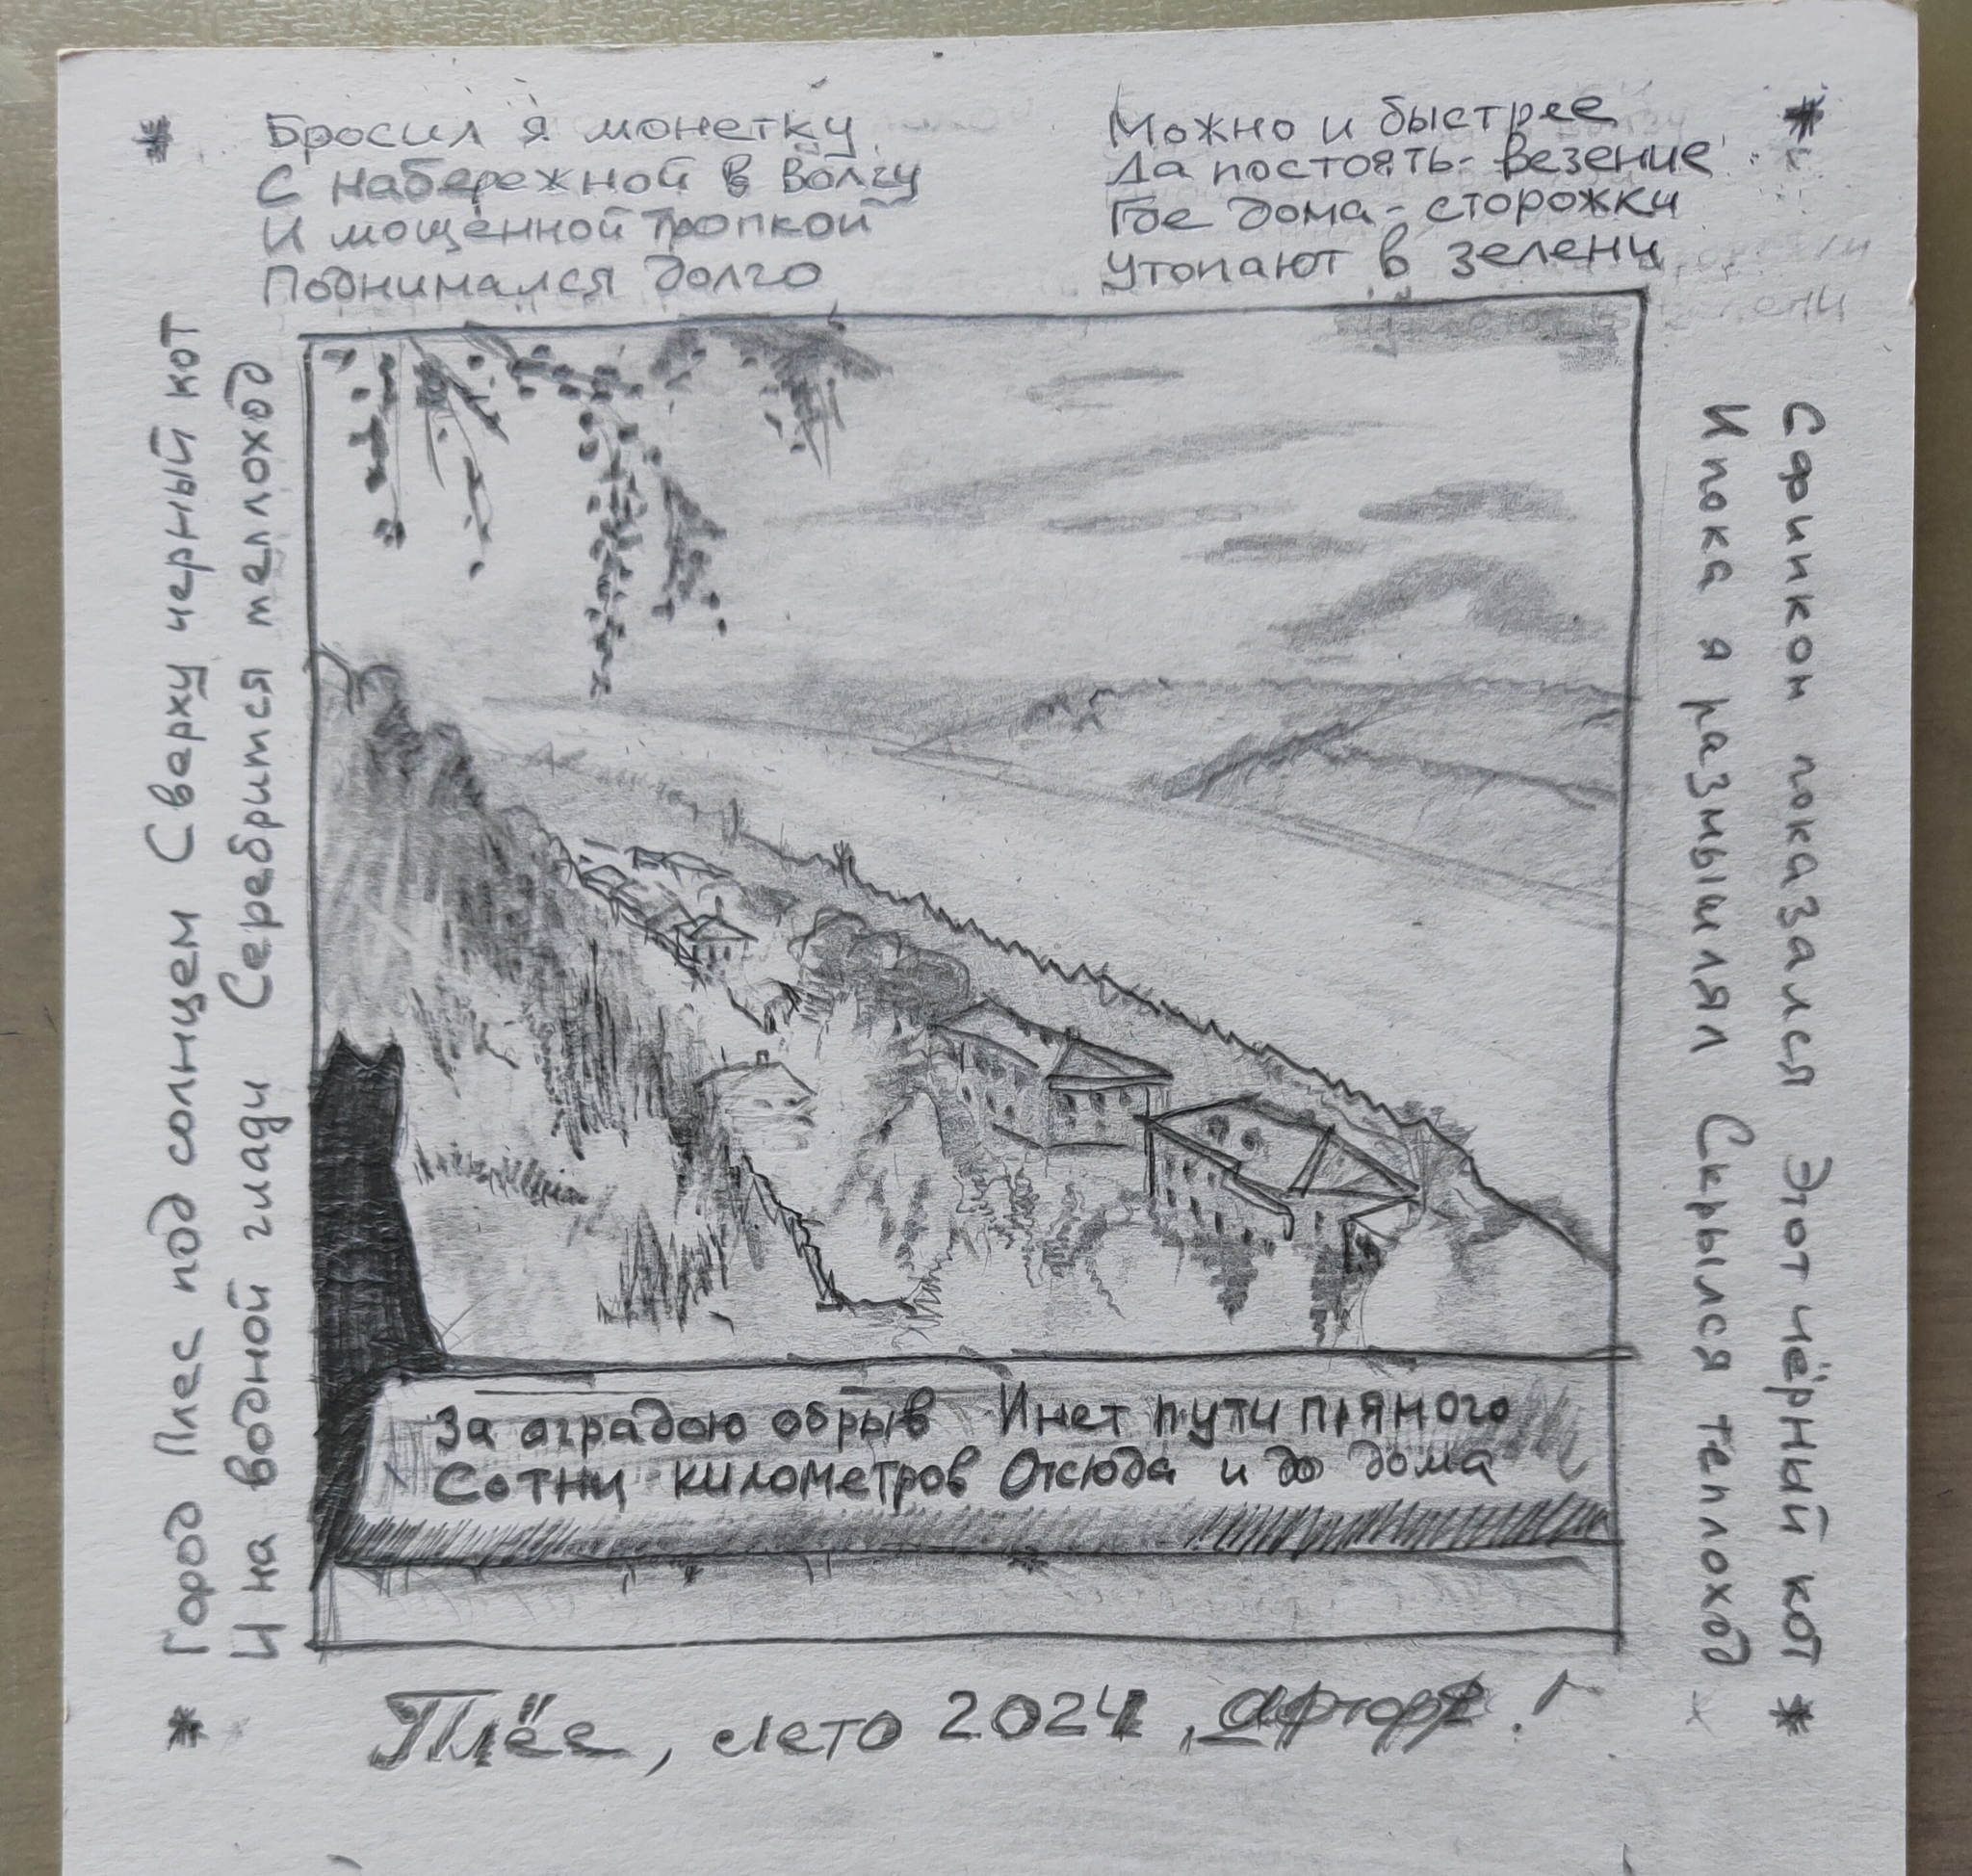 Бросил я монетку
С набережной в Волгу
И мощённой тропкой
Поднимался долго
Можно и быстрее
Да постоять - везение
Где дома - сторожки
Утопают в зелени
Город Плес под солнцем Сверху черный кот
И на водной глади Серебрится теплоход
Сфинксом показался Этот чёрный кот
И пока я размышлял Скрылся теплоход
За оградою обрыв И нет пути прямого
Сотни километров Отсюда и до дома
Плёс, лето 2024,